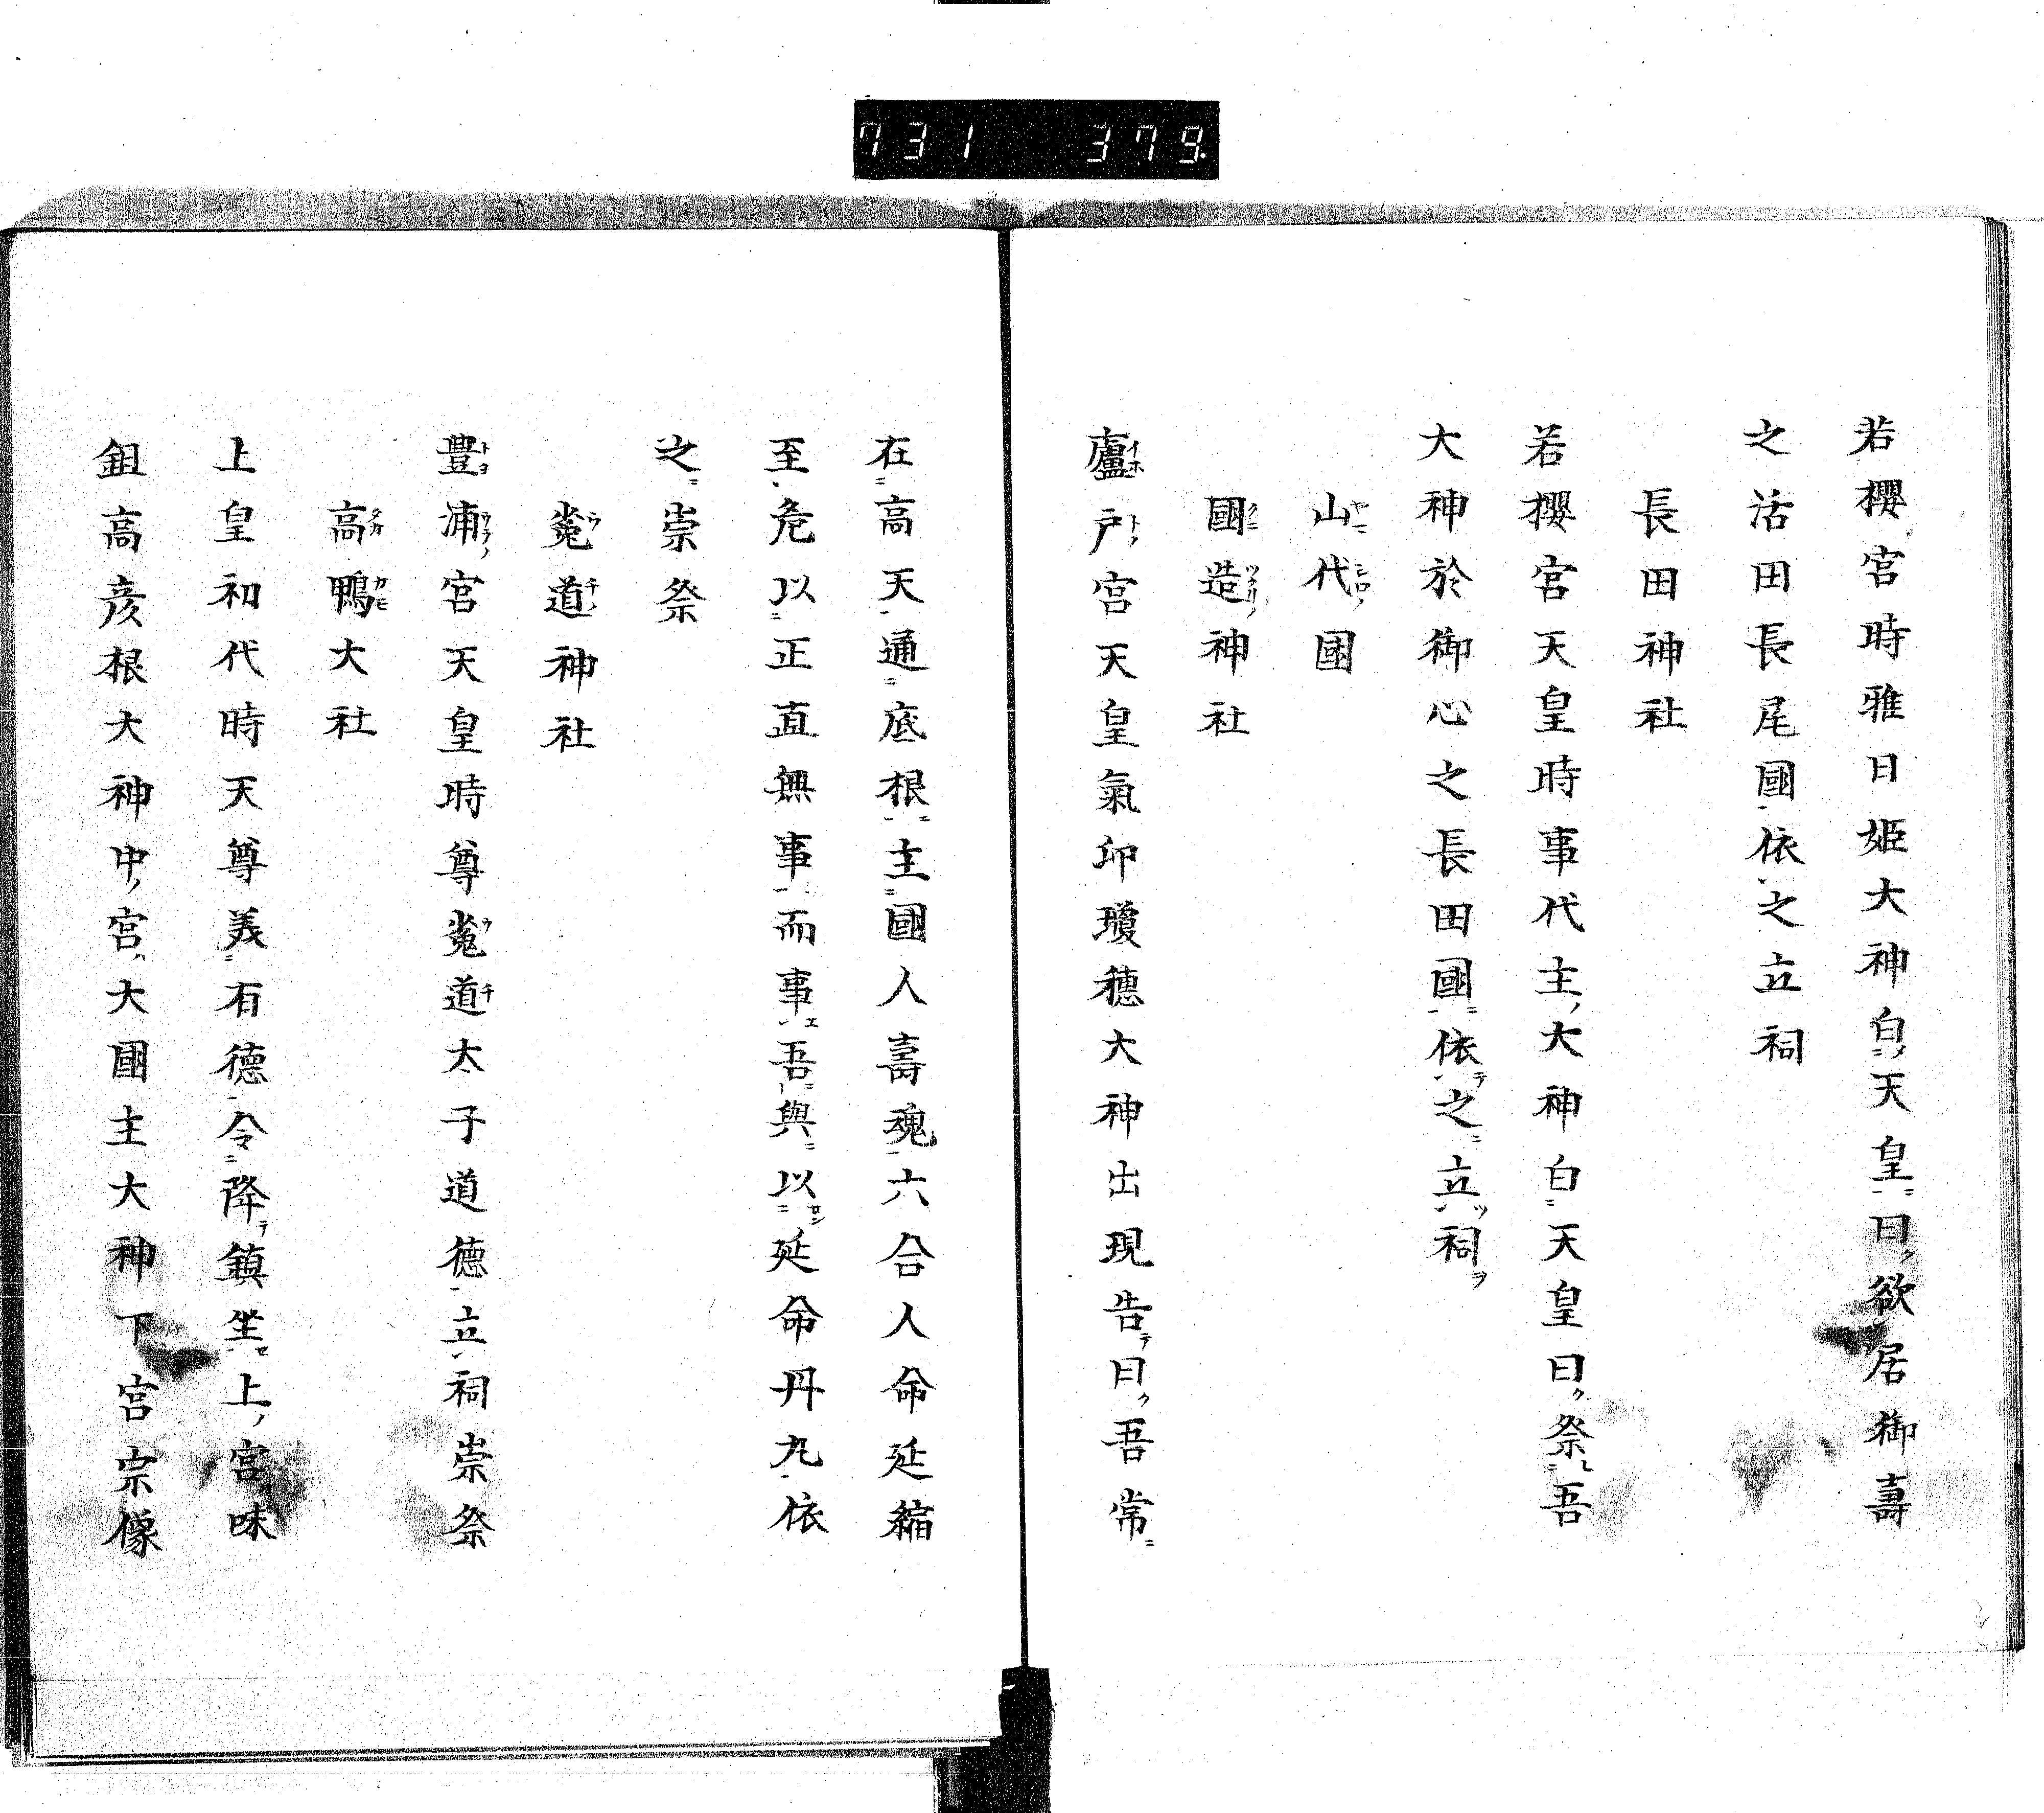 731 379.
若櫻宮時雅日姫大神白天皇曰欲居御壽
之活田長尾國依之立祠
長田神社
若櫻宮天皇時事代主大神白天皇曰祭吾
大神於御心之長田國依之立祠
山代國
國造神社
廬戸宮天皇氣卬瓊穂大神出現告曰吾常
在高天通底根主國人壽魂六合人命延縮
至危以正直無事而事吾與以延命丹丸依
之崇祭
菟道神社
豊浦宮天皇時尊菟道太子道德立祠崇祭
高鴨大社
上皇和代時天尊義有德令降鎮坐上宮味
鉏高彦根大神中宮大國主大神下宮宗像